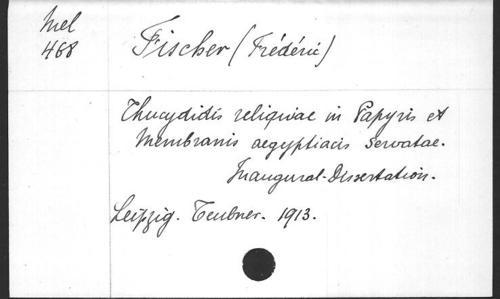 Mel
468
Fischer (Frédéric)
Thucydidis reliquiae in Papyris et
Membranis aegyptiacis servatae.
Inaugural-Dissertation.
Leipzig. Teubner. 1913.